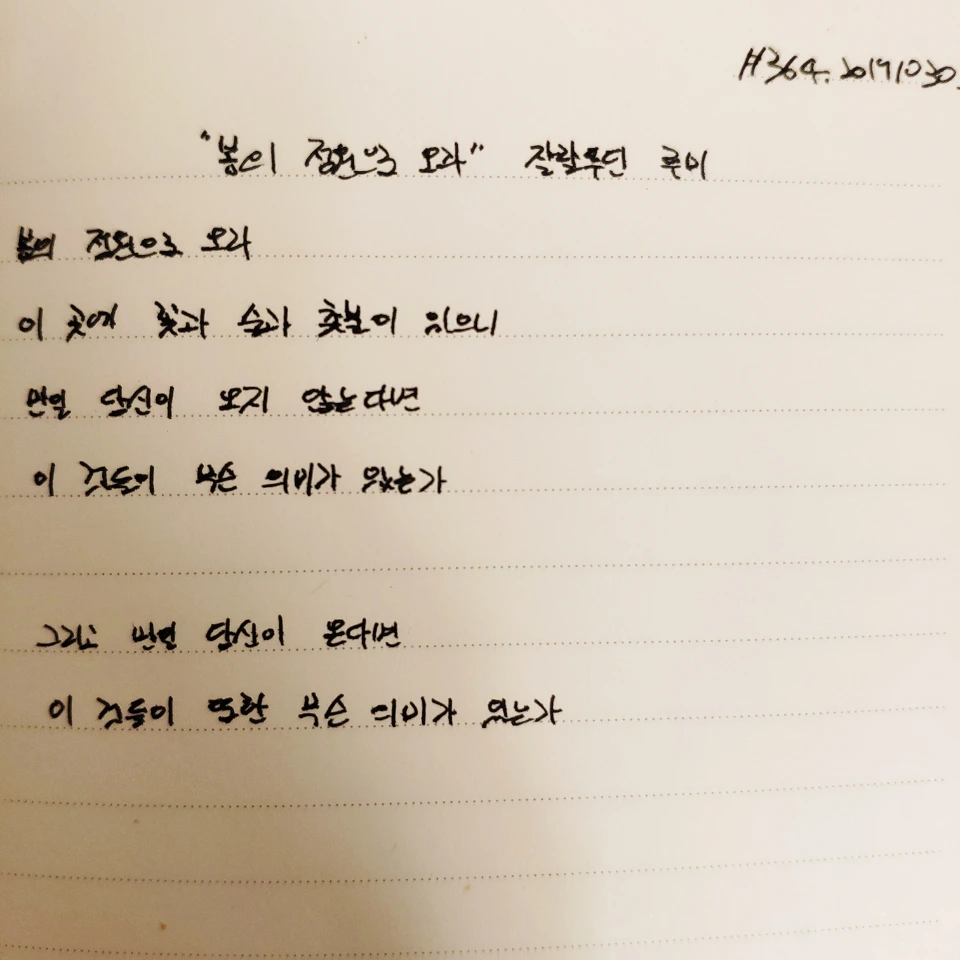 H364. 20191030.
"봄의 정원으로 오라" 잘랄루딘 루미
봄의 정원으로 오라
이 곳에 꽃과 술과 촛불이 있으니
만일 당신이 오지 않는다면
이 것들이 무슨 의미가 있는가
그리고 만일 당신이 온다면
이 것들이 또한 무슨 의미가 있는가